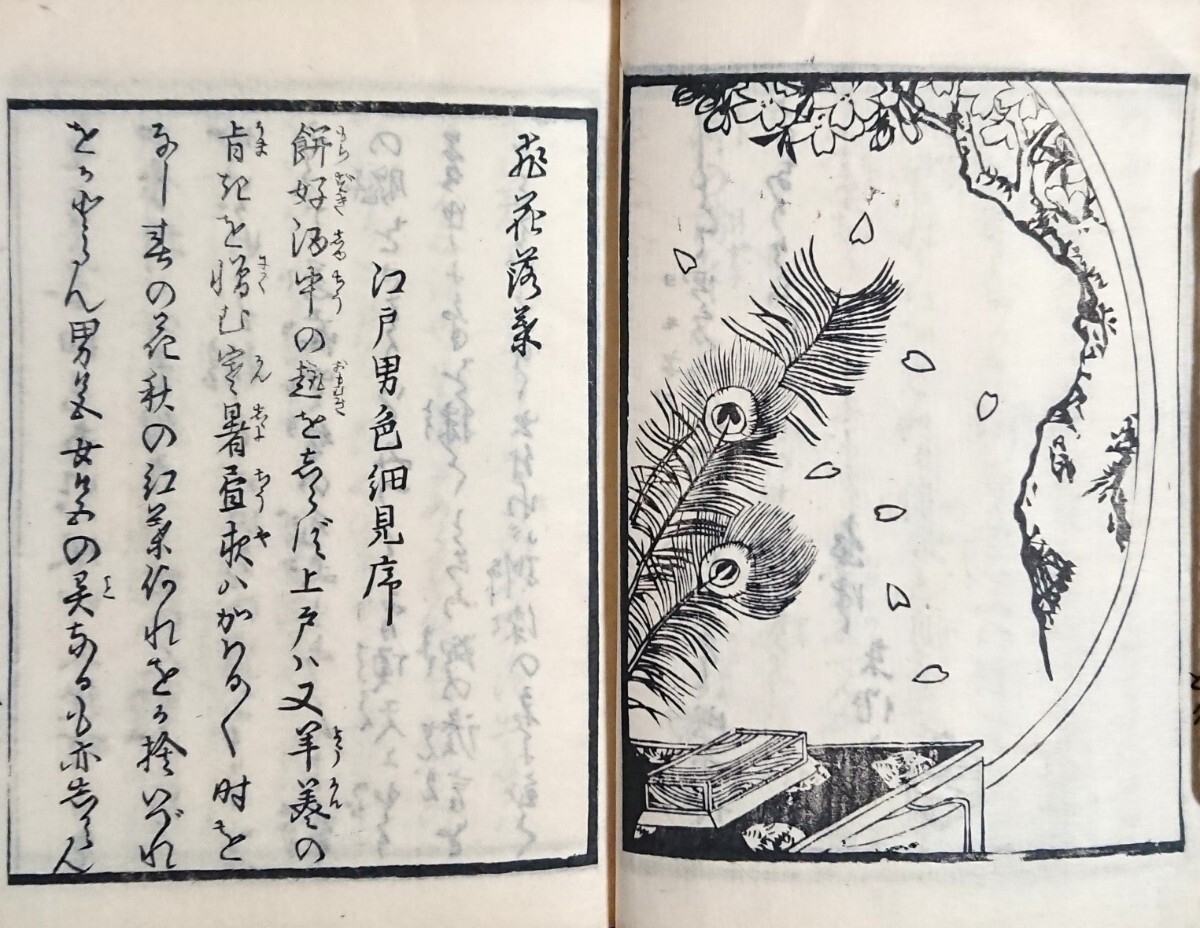 飛花落葉
江戸男色細見序
餅好酒中の趣をしらず上戸ハ又羊羹の
旨きを憎む寒暑昼夜ハかわる〳〵時を
なし春の花秋の紅葉何れをか捨いづれ
をかとらん男色女色の異なるも亦しからん